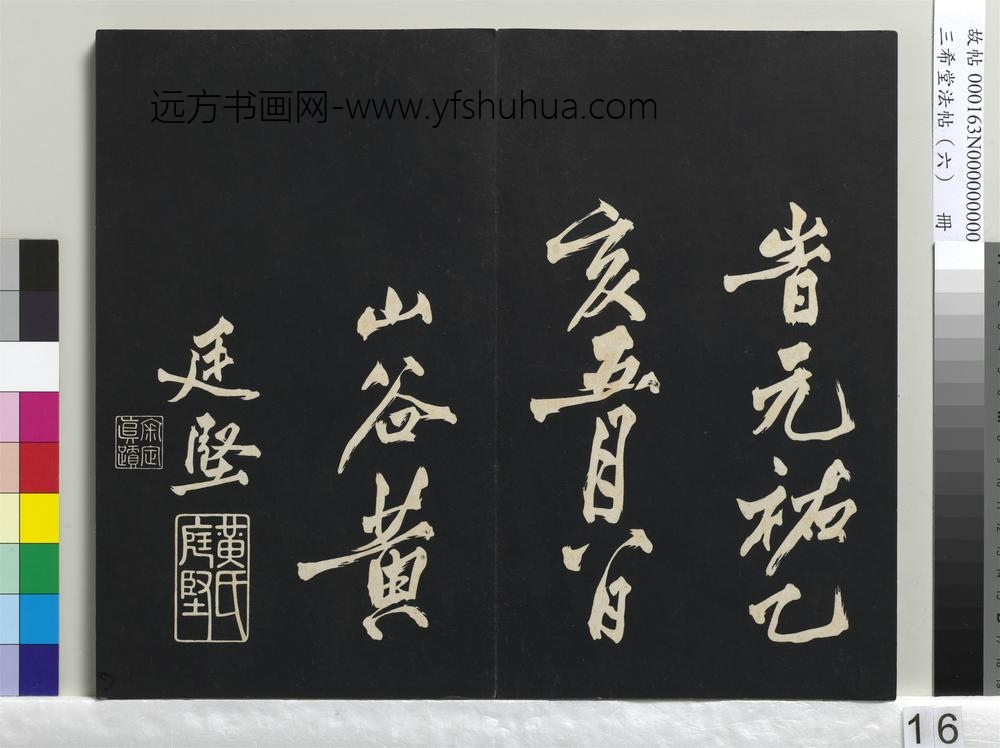 远方书画网-www.yfshuhua.com
故帖 000163N000000000
三希堂法帖(六) 冊
旹元祐乙
亥五月八日
山谷黃
廷堅
黃氏
庭堅
16